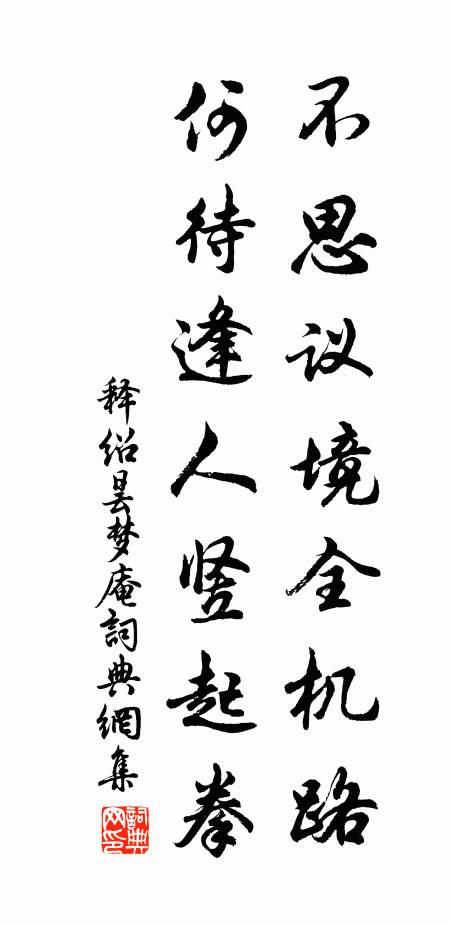 不思议境全机路
何待逢人竖起拳
释绍昙梦庵詞典網集
詞典网印